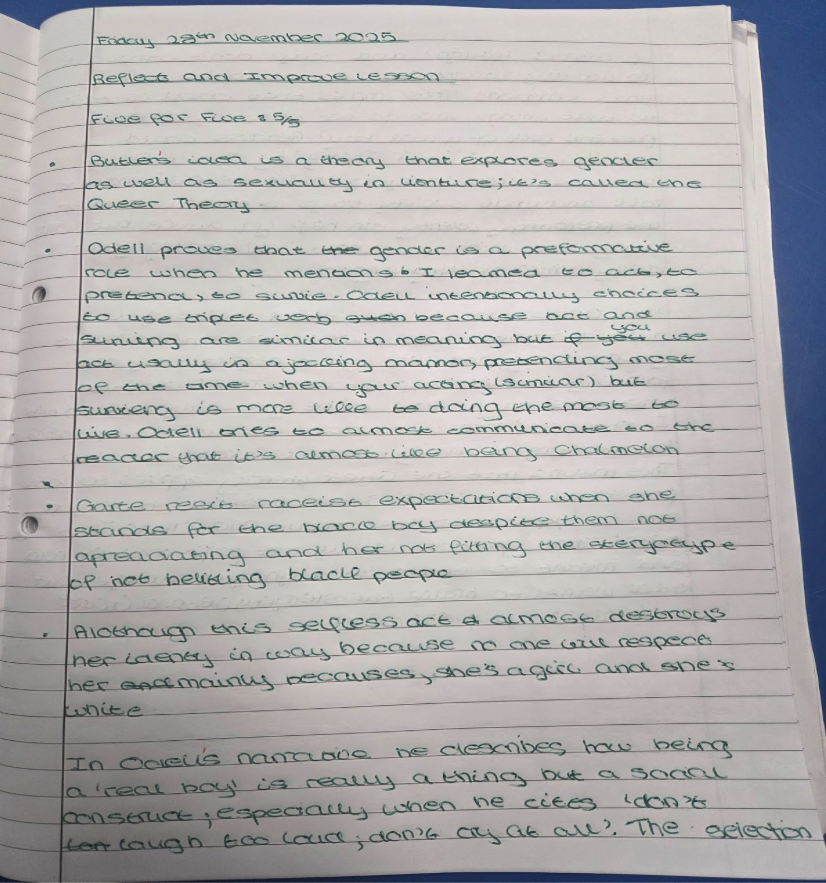 Friday 28th November 2025
Reflect and Improve Lesson
Five for Five : 5/5
• Butler's idea is a theory that explores gender
as well as sexuality in ; it's called the
Queer Theory
• Odell proves that the gender is a preformative
role when he mentions I learned to act, to
pretend, to survie. Odell intensonally choices
to use triplet verb because act and
are similar in meaning but if you use
act usally in a jocking mannor, pretending most
of the time when your acting (similar) but
is more like to doing the most to
live. Odell tries to almost communicate to the
reader that it's almost like being Chalmeion
• raceist expectations when she
stands for the black boy despite them not
apreaciating and her not fitting the
of not black people
• Alothough this selfless act almost destroys
her in way because no one will respect
her and mainly becauses, she's a girl and she's
white
In Odell's narrative he describes how being
a 'real boy' is really a thing but a social
construct; especially when he cites 'don't
laugh too loud; don't cry at all'. The selection